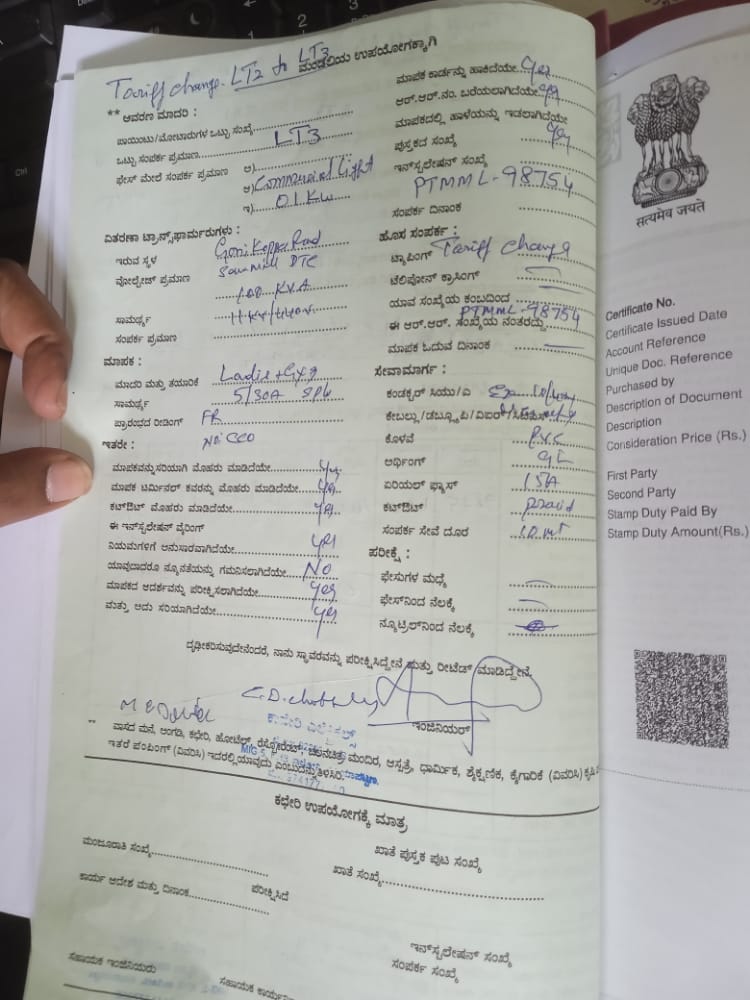 Tariff change. LT2 to LT3
ಮಂಡಲಿಯ ಉಪಯೋಗಕ್ಕಾಗಿ
** ಆವರಣ ಮಾದರಿ :
ಪಾಯಿಂಟು/ಮೋಟಾರುಗಳ ಒಟ್ಟು ಸಂಖ್ಯೆ
ಒಟ್ಟು ಸಂಪರ್ಕ ಪ್ರಮಾಣ LT3
ಫೇಸ್ ಮೇಲೆ ಸಂಪರ್ಕ ಪ್ರಮಾಣ ಅ)
ಆ) Commercial Light
ಇ) 0.1 KW
ವಿತರಣಾ ಟ್ರಾನ್ಸ್‌ಫಾರ್ಮರುಗಳು :
ಇರುವ ಸ್ಥಳ Gonikoppa Road
Sawmill DTC
ವೋಲ್ಟೇಜ್ ಪ್ರಮಾಣ 100 KVA
ಸಾಮರ್ಥ್ಯ 11KV/440V
ಸಂಪರ್ಕ ಪ್ರಮಾಣ
ಮಾಪಕ :
ಮಾದರಿ ಮತ್ತು ತಯಾರಿಕೆ
ಸಾಮರ್ಥ್ಯ 5/30A
ಪ್ರಾರಂಭದ ರೀಡಿಂಗ್ FR
ಇತರೇ :
ಮಾಪಕವನ್ನು ಸರಿಯಾಗಿ ಮೊಹರು ಮಾಡಿದೆಯೇ Yes
ಮಾಪಕ ಟರ್ಮಿನಲ್ ಕವರನ್ನು ಮೊಹರು ಮಾಡಿದೆಯೇ Yes
ಕಟ್‌ಔಟ್ ಮೊಹರು ಮಾಡಿದೆಯೇ Yes
ಈ ಇನ್‌ಸ್ಟಲೇಷನ್ ವೈರಿಂಗ್
ನಿಯಮಗಳಿಗೆ ಅನುಸಾರವಾಗಿದೆಯೇ Yes
ಯಾವುದಾದರೂ ನ್ಯೂನತೆಯನ್ನು ಗಮನಿಸಲಾಗಿದೆಯೇ No
ಮಾಪಕದ ಆದರ್ಶವನ್ನು ಪರೀಕ್ಷಿಸಲಾಗಿದೆಯೇ Yes
ಮತ್ತು ಅದು ಸರಿಯಾಗಿದೆಯೇ Yes
ಮಾಪಕ ಕಾರ್ಡನ್ನು ಹಾಕಿದೆಯೇ Yes
ಆರ್.ಆರ್.ನಂ. ಬರೆಯಲಾಗಿದೆಯೇ Yes
ಮಾಪಕದಲ್ಲಿ ಹಾಳೆಯನ್ನು ಇಡಲಾಗಿದೆಯೇ
ಪುಸ್ತಕದ ಸಂಖ್ಯೆ Yes
ಇನ್‌ಸ್ಟಲೇಷನ್ ಸಂಖ್ಯೆ
PTMML-98754
ಸಂಪರ್ಕ ದಿನಾಂಕ
ಹೊಸ ಸಂಪರ್ಕ :
ಟ್ಯಾಪಿಂಗ್ Tariff change
ಟೆಲಿಫೋನ್ ಕ್ರಾಸಿಂಗ್
ಯಾವ ಸಂಖ್ಯೆಯ ಕಂಬದಿಂದ
ಈ ಆರ್.ಆರ್. ಸಂಖ್ಯೆಯ ನಂತರದ್ದು PTMML-98754
ಮಾಪಕ ಓದುವ ದಿನಾಂಕ
ಸೇವಾಮಾರ್ಗ :
ಕಂಡಕ್ಟರ್ ಸಿಯು/ಎ
ಕೇಬಲ್ಲು/ಡಬ್ಲ್ಯೂಪಿ/ವಿಐಆರ್
ಕೊಳವೆ P.V.C
ಅರ್ಥಿಂಗ್ GI
ಏರಿಯಲ್ ಫ್ಯೂಸ್ 15A
ಕಟ್‌ಔಟ್
ಸಂಪರ್ಕ ಸೇವೆ ದೂರ 10 mt
ಪರೀಕ್ಷೆ :
ಫೇಸುಗಳ ಮಧ್ಯೆ
ಫೇಸ್‌ನಿಂದ ನೆಲಕ್ಕೆ
ನ್ಯೂಟ್ರಲ್‌ನಿಂದ ನೆಲಕ್ಕೆ
ದೃಢೀಕರಿಸುವುದೇನೆಂದರೆ, ನಾನು ಸ್ಥಾವರವನ್ನು ಪರೀಕ್ಷಿಸಿದ್ದೇನೆ ಮತ್ತು ರೀಟೆಡ್ ಮಾಡಿದ್ದೇನೆ.
ಇಂಜಿನಿಯರ್
** ವಾಸದ ಮನೆ, ಅಂಗಡಿ, ಕಛೇರಿ, ಹೋಟೆಲ್, ರೆಸ್ಟೋರೆಂಟ್, ಚಲನಚಿತ್ರ ಮಂದಿರ, ಆಸ್ಪತ್ರೆ, ಧಾರ್ಮಿಕ, ಶೈಕ್ಷಣಿಕ, ಕೈಗಾರಿಕೆ (ವಿವರಿಸಿ)
ಇತರೆ ಪಂಪಿಂಗ್ (ವಿವರಿಸಿ) ಇದರಲ್ಲಿ ಯಾವುದು ಎಂಬುದನ್ನು ತಿಳಿಸಿರಿ.
ಕಛೇರಿ ಉಪಯೋಗಕ್ಕೆ ಮಾತ್ರ
ಮಂಜೂರಾತಿ ಸಂಖ್ಯೆ
ಖಾತೆ ಪುಸ್ತಕ ಪುಟ ಸಂಖ್ಯೆ
ಖಾತೆ ಸಂಖ್ಯೆ
ಕಾರ್ಯ ಆದೇಶ ಮತ್ತು ದಿನಾಂಕ
ಪರೀಕ್ಷಿಸಿದೆ
ಇನ್‌ಸ್ಟಲೇಷನ್ ಸಂಖ್ಯೆ
ಸಂಪರ್ಕ ಸಂಖ್ಯೆ
ಸಹಾಯಕ ಇಂಜಿನಿಯರು
ಸಹಾಯಕ
सत्यमेव जयते
Certificate No.
Certificate Issued Date
Account Reference
Unique Doc. Reference
Purchased by
Description of Document
Description
Consideration Price (Rs.)
First Party
Second Party
Stamp Duty Paid By
Stamp Duty Amount(Rs.)